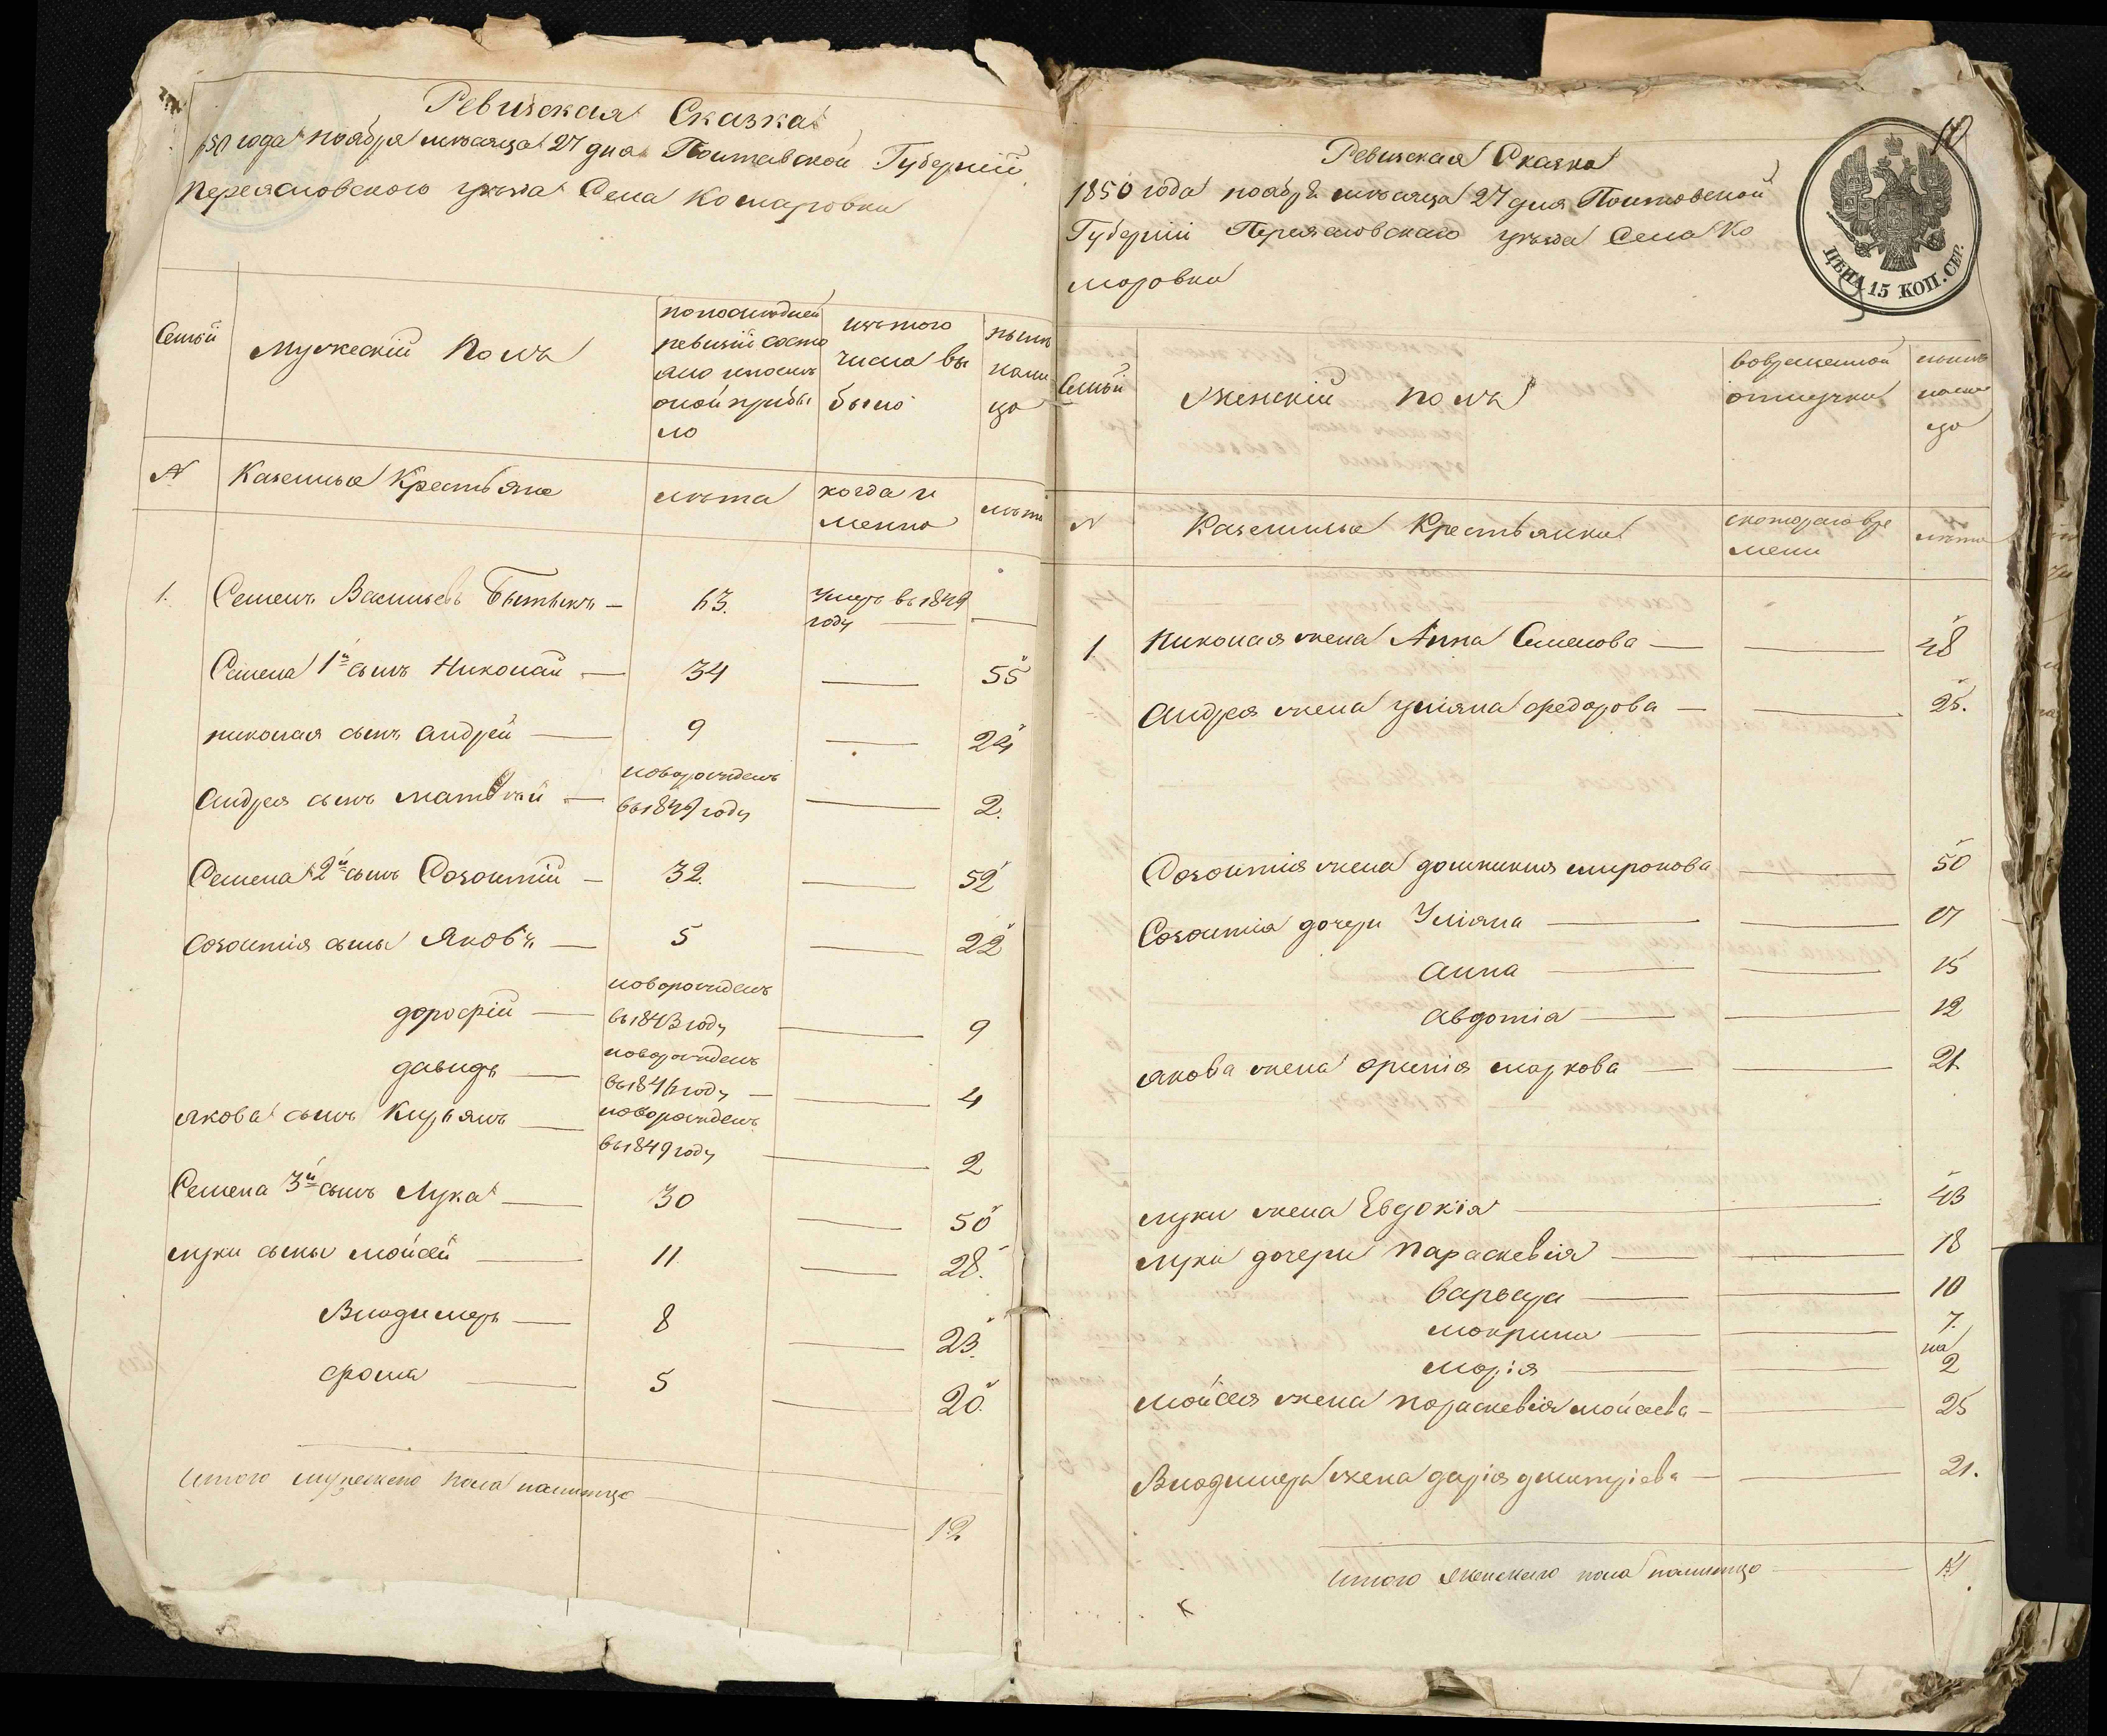 Ревизская Сказка
1850 года ноября месяца 27 дня Полтавской Губернии
Переясловского уезда Села Комаровки
Семьи
Мужескій Полъ
по последней
ревизіи состо
яло и после
оной прибы
ло
изъ того
числа вы
было
ныне
нали
цо
N
Казенные Крестьяне
лета
когда и
менно
лета
1. Семенъ Васильевъ — 63. умеръ въ 1849
году — —
Семена 1й сынъ Николай — 34 — 55
николая сынъ андрей — 9 — 24
новорожденъ
Андрея сынъ матвѣй — въ 1849 году — 2.
Семена 2й сынъ Созонтій — 32. — 52
созонтія сыны Яковъ — 5 — 22
новорожденъ
дорофій — въ 1843 году — 9
новорожденъ
давидъ — въ 1846 году — 4
якова сынъ Кирьянъ — новорожденъ
въ 1849 году — 2
Семена 3й сынъ Лука — 30 — 50
луки сыны мойсей — 11 — 28.
Владимеръ — 8 — 23.
фома — 5 — 20.
итого мужеска пола налицо — 12
10
Ревизская Сказка
1850 года ноября месяца 27 дня Полтовской
Губерніи Переясловского уезда Села Ко
моровки
ЦѢНА 15 КОП. СЕР.
Семьи
женскій полъ
вовременной
отлучки
ныне
нали
цо
N
Казенные Крестьянки
скотораго вре
мени
лета
1. Николая жена Анна Семенова — — 48
Андрея жена уліяна федорова — — 25.
Созонтія жена домникия миронова — 50
Созонтіа дочери Уліяна — — 17
анна — — 15
авдотіа — — 12
якова жена ориніа маркова — — 21.
луки жена Евдокіа — 43
луки дочери параскевія — — 18
варвара — — 10
мокрина — — 7.
маріа — 2
мойсея жена параскевія мойсеева — — 25
Владимера жена дарія дмитріева — — 21.
итого женскаго пола налицо — 14